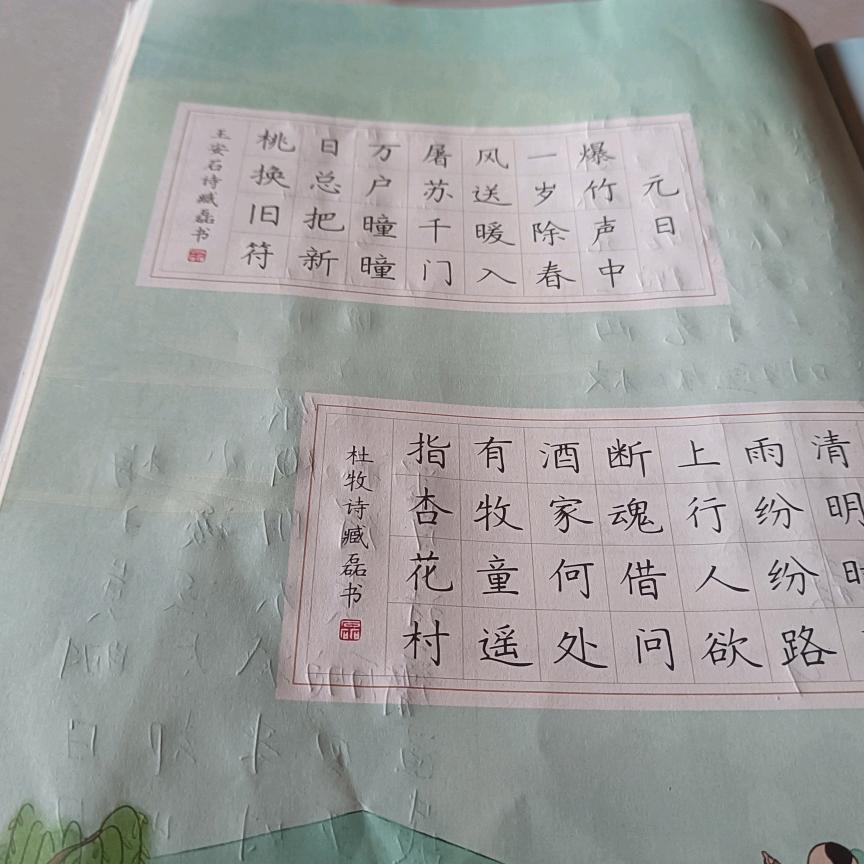 元日
爆竹声中
一岁除春
风送暖入
屠苏千门
万户曈曈
日总把新
桃换旧符
王安石诗臧磊书
清明时
雨纷纷路
上行人欲
断魂借问
酒家何处
有牧童遥
指杏花村
杜牧诗臧磊书